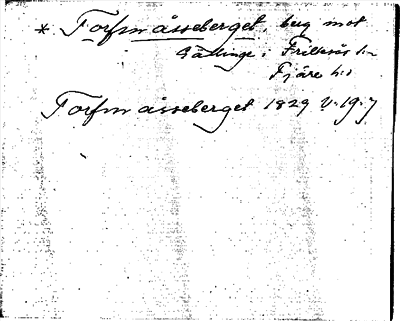 * Torfmåsseberget, berg mot
Gällinge i Frillesås sn
Fjäre hd
Torfmåsseberget 1829 V. 19. 7